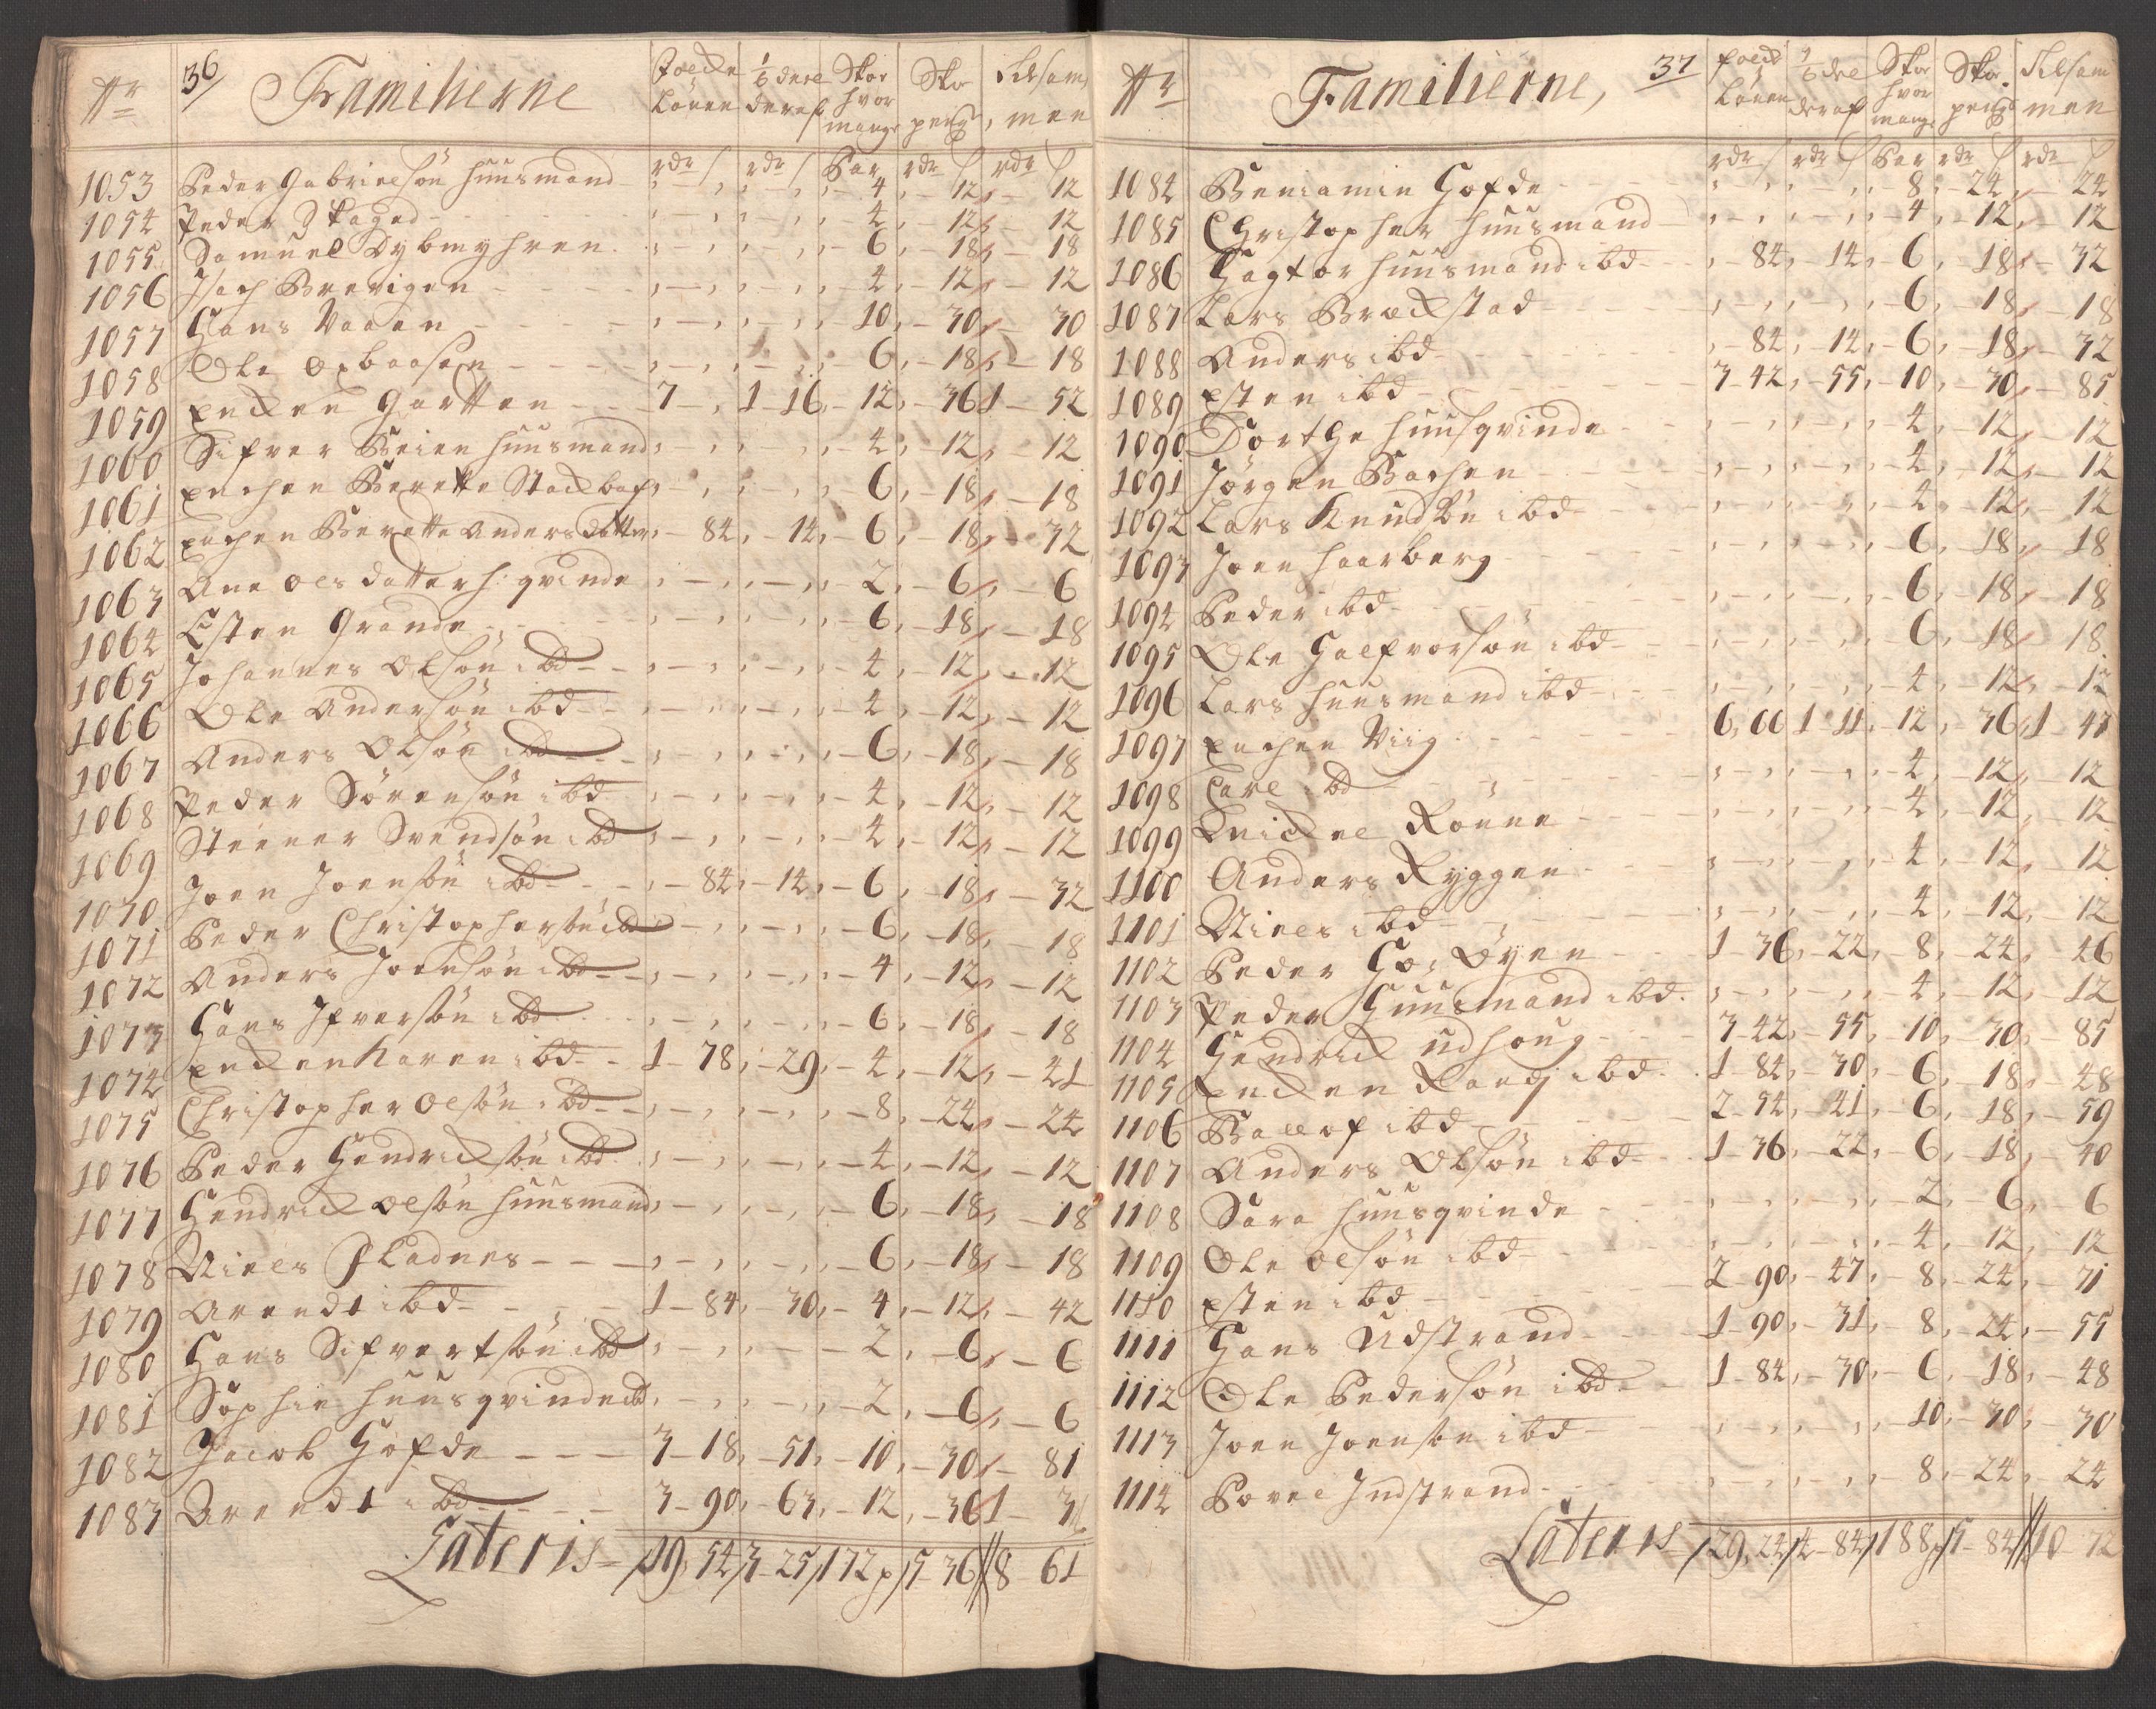 Nr 36 Familierne Folcke Lönen 1/6 deel deraf Skor hvor mange Sko penge, Tilsammen
rdr ß rdr ß Par rdr ß rdr ß
1053 Peder Gabrielsön huusmand 4 12 12
1054 Peder Skaged 4 12 12
1055 Samuel Dybmyhren 6 18 18
1056 Isach Brevigen 4 12 12
1057 Hans Vaaen 10 30 30
1058 Ole Opbaasen 6 18 18
1059 Encken Gartten 7 1-16 12 36 1-52
1060 Sifver Beien huusmand 4 12 12
1061 Enchen Berette Stackbaf 6 18 18
1062 Enchen Berette Andersdatter 84 14 6 18 32
1063 Ane Olsdatter h: qvinde 2 6 6
1064 Esten Grande 6 18 18
1065 Johannes Olsön ibd 4 12 12
1066 Ole Andersön ibd 4 12 12
1067 Anders Olsön ibd 6 18 18
1068 Peder Sörensön ibd 4 12 12
1069 Steener Svendsön ibd 4 12 12
1070 Joen Joensön ibd 84 14 6 18 32
1071 Peder Christophersön ibd 6 18 18
1072 Anders Joensön ibd 4 12 12
1073 Hans Ifversön ibd 6 18 18
1074 Encken Karen ibd 1-78 29 4 12 41
1075 Christopher Olsön ibd 8 24 24
1076 Peder Hendricksön ibd 4 12 12
1077 Hendrick Olsön huusmand 6 18 18
1078 Niels Fladnes 6 18 18
1079 Arendt ibd 1-84 30 4 12 42
1080 Hans Sifvertsön ibd 2 6 6
1081 Sophie huusqvinde ibd 2 6 6
1082 Jacob Hofde 3-18 51 10 30 81
1083 Arendt ibd 3-90 63 12 36 1-3
Lateris 19,54 3-25 172 p 5-36 8 61
Nr Familierne, 37 Folck Lönen 1/6 deel deraf Skor hvor mange Sko penge Tilsammen
rdr ß rdr ß Par rdr ß rdr ß
1084 Beniamin Hofde 8 24 24
1085 Christopher huusmand 4 12 12
1086 Hagtor huusmand ibd 84 14 6 18 32
1087 Lars Brækstad 6 18 18
1088 Anders ibd 84 14 6 18 32
1089 Esten ibd 3-42 55 10 30 85
1090 Dorthe huusqvinde 4 12 12
1091 Jörgen Bachen 4 12 12
1092 Lars Knudsön ibd 4 12 12
1093 Joen Haarberg 6 18 18
1094 Peder ibd 6 18 18
1095 Ole Halfvorsön ibd 6 18 18
1096 Lars huusmand ibd 4 12 12
1097 Enchen Viig 6,66 1 11 12 36 1 47
1098 Carl ibd 4 12 12
1099 Mickel Rönne 4 12 12
1100 Anders Ryggen 4 12 12
1101 Niels ibd 4 12 12
1102 Peder Ho, Öyen 1-36 22 8 24 46
1103 Peder Huusmand ibd 4 12 12
1104 Hendrick Udhoug 3-42 55 10 30 85
1105 Encken Randj ibd 1-84 30 6 18 48
1106 Ballof ibd 2-54 41 6 18 59
1107 Anders Olsön ibd 1-36 22 6 18 40
1108 Sara huusqvinde 2 6 6
1109 Ole Olsön ibd 4 12 12
1110 Esten ibd 2-90 47 8 24 71
1111 Hans Udstrand 1-90 31 8 24 55
1112 Ole Pedersön ibd 1-84 30 6 18 48
1113 Joen Joensön ibd 10 30 30
1114 Povel Indstrand 8 24 24
Lateris 29,24 4-84 188 p 5-84 10-72